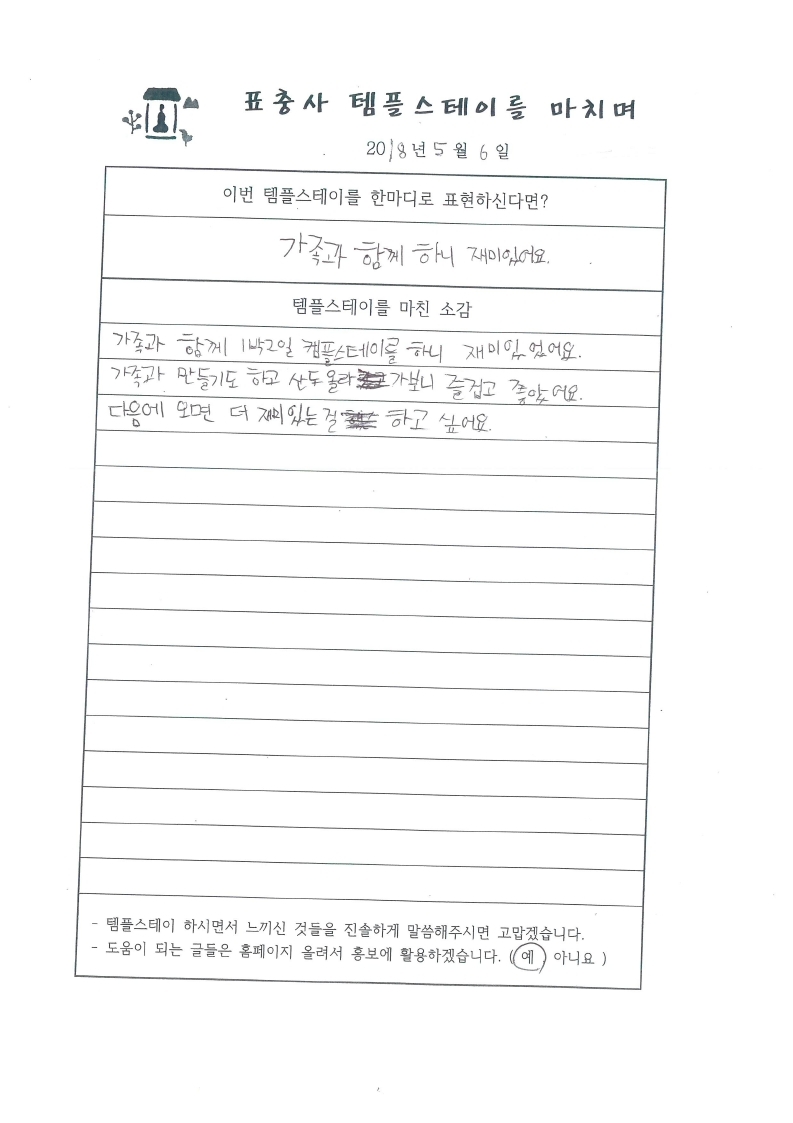 표충사 템플스테이를 마치며
2018년 5월 6일
이번 템플스테이를 한마디로 표현하신다면?
가족과 함께 하니 재미있어요.
템플스테이를 마친 소감
가족과 함께 1박2일 캠플스테이를 하니 재미있었어요.
가족과 만들기도 하고 산두 올라 가보니 즐겁고 좋았어요.
다음에 오면 더 재미있는걸 하고 싶어요.
- 템플스테이 하시면서 느끼신 것들을 진솔하게 말씀해주시면 고맙겠습니다.
- 도움이 되는 글들은 홈페이지 올려서 홍보에 활용하겠습니다. ( 예 , 아니요 )